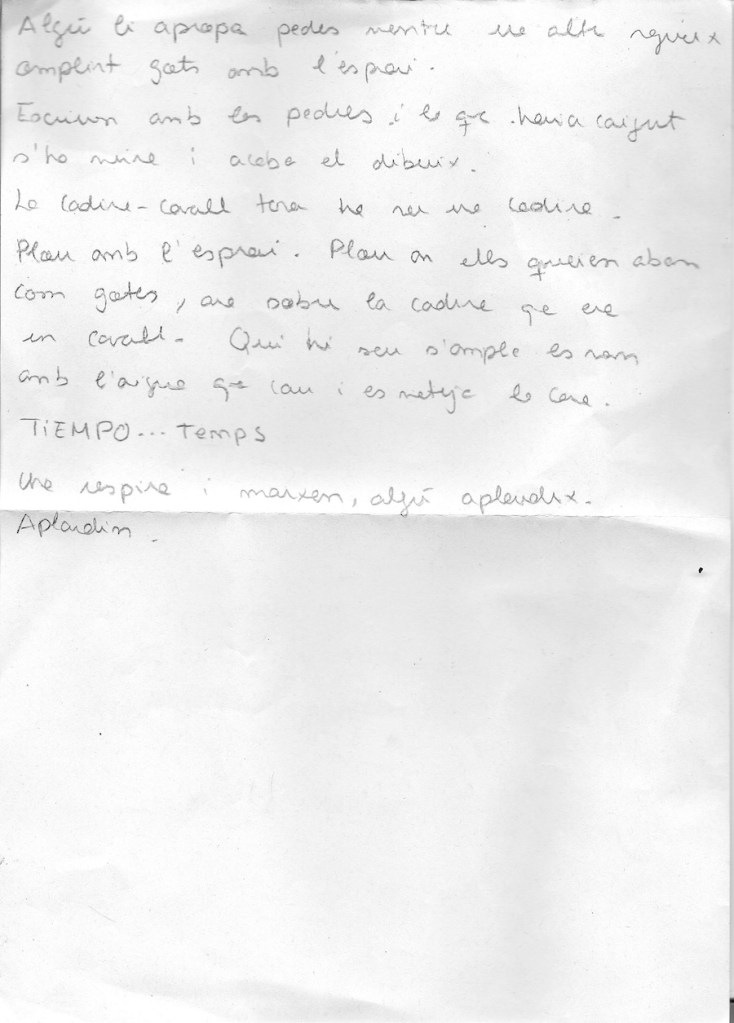 Algú li apropa pedres mentre una altre segueix
omplint gots amb l'esprai.
Escriuen amb les pedres i la que havia caigut
s'ho mira i acaba el dibuix.
La cadira-cavall torna ha ser una cadira.
Plou amb l'esprai. Plou on elles queien abans
com gotes, ara sobre la cadira que era
un cavall. Qui hi seu s'omple es ram
amb l'aigua que cau i es neteja la cara.
TIEMPO... Temps
Una respira i marxen, algú aplaudix.
Aplaudim.